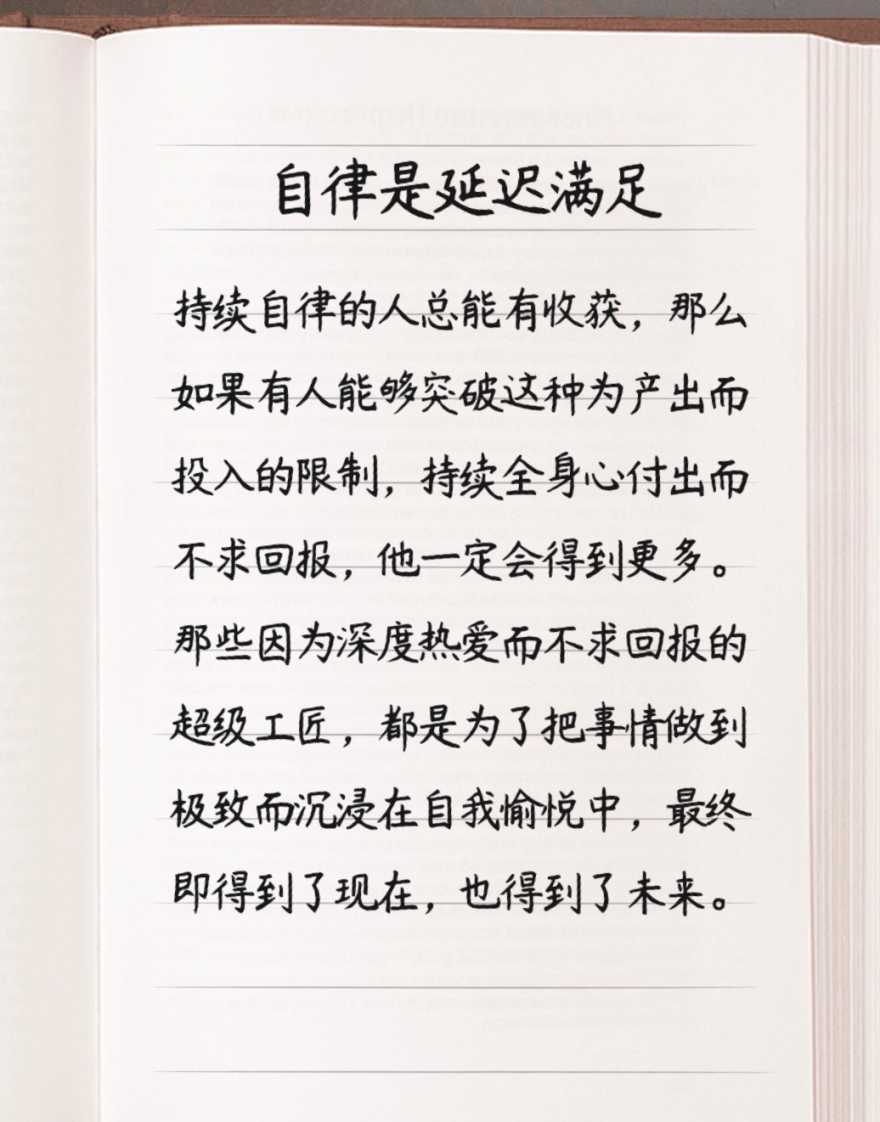 自律是延迟满足
持续自律的人总能有收获，那么
如果有人能够突破这种为产出而
投入的限制，持续全身心付出而
不求回报，他一定会得到更多。
那些因为深度热爱而不求回报的
超级工匠，都是为了把事情做到
极致而沉浸在自我愉悦中，最终
即得到了现在，也得到了未来。